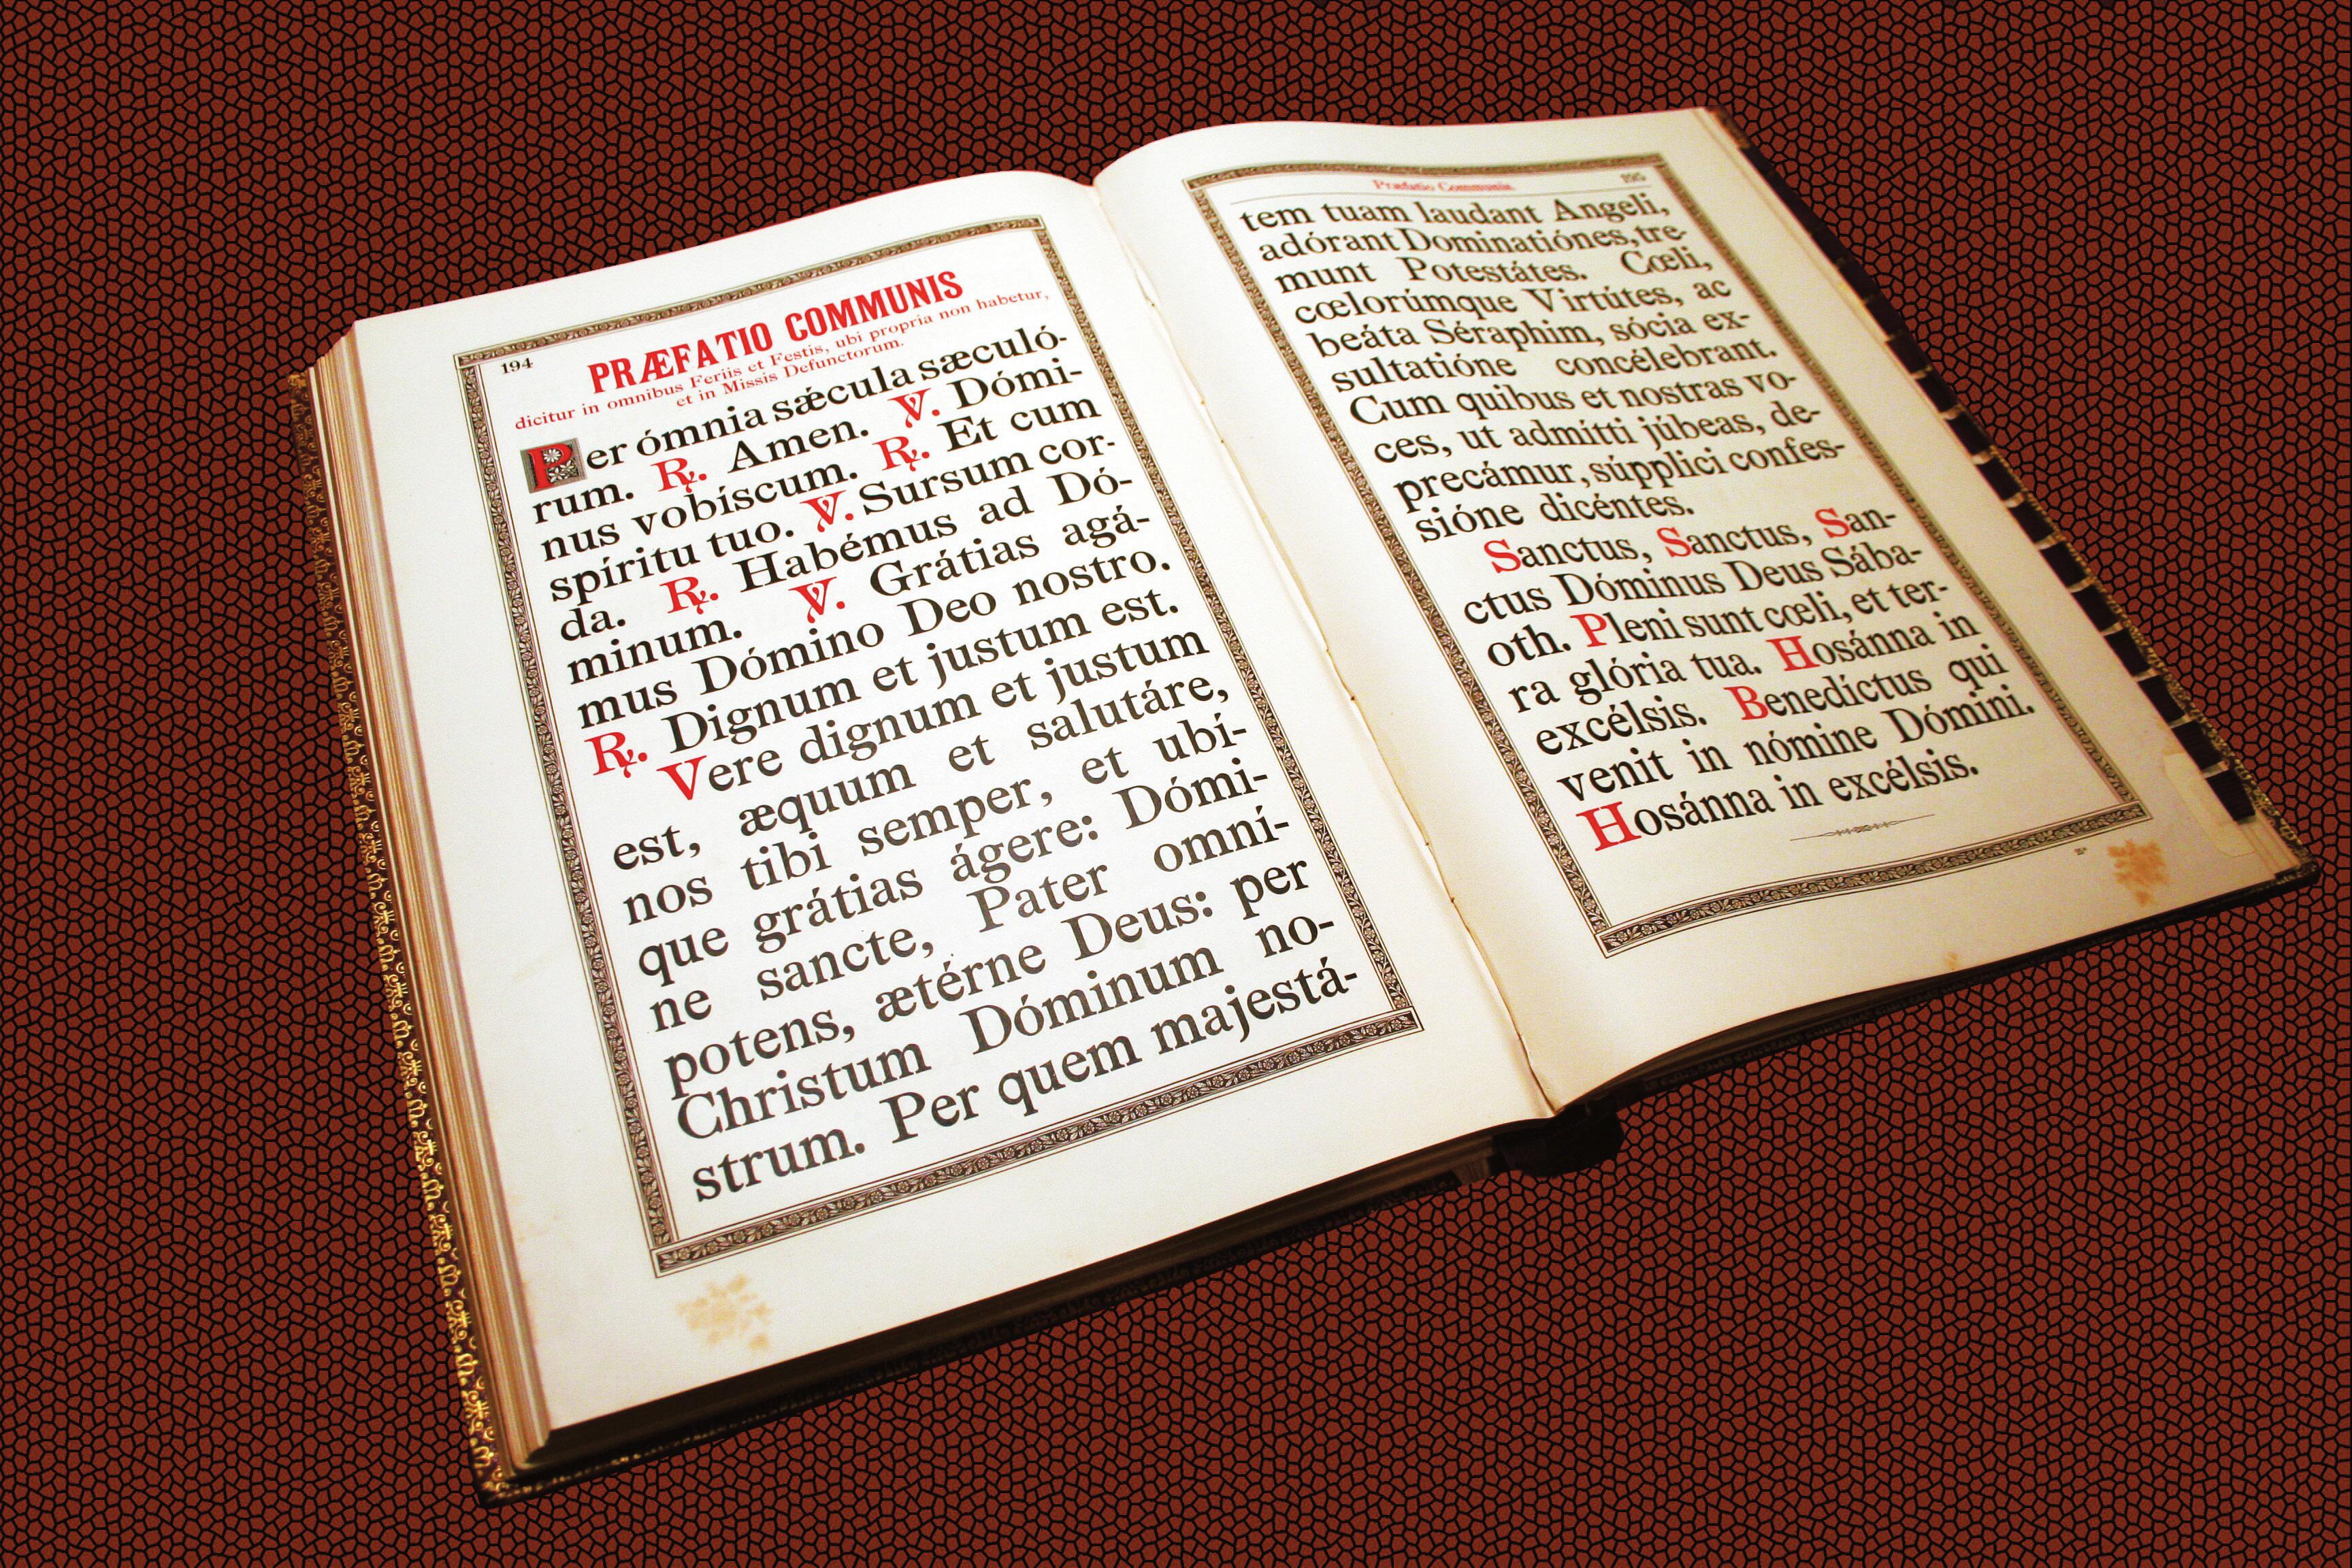 194
PRÆFATIO COMMUNIS
dicitur in omnibus Feriis et Festis, ubi propria non habetur,
et in Missis Defunctorum.
Per ómnia sǽcula sæculó-
rum. ℟. Amen. ℣. Dómi-
nus vobíscum. ℟. Et cum
spíritu tuo. ℣. Sursum cor-
da. ℟. Habémus ad Dó-
minum. ℣. Grátias agá-
mus Dómino Deo nostro.
℟. Dignum et justum est.
Vere dignum et justum
est, æquum et salutáre,
nos tibi semper, et ubí-
que grátias ágere: Dómi-
ne sancte, Pater omní-
potens, ætérne Deus: per
Christum Dóminum no-
strum. Per quem majestá-
Præfatio Communis.
195
tem tuam laudant Angeli,
adórant Dominatiónes, tre-
munt Potestátes. Cœli,
cœlorúmque Virtútes, ac
beáta Séraphim, sócia ex-
sultatióne concélebrant.
Cum quibus et nostras vo-
ces, ut admitti júbeas, de-
precámur, súpplici confes-
sióne dicéntes.
Sanctus, Sanctus, San-
ctus Dóminus Deus Sába-
oth. Pleni sunt cœli, et ter-
ra glória tua. Hosánna in
excélsis. Benedíctus qui
venit in nómine Dómini.
Hosánna in excélsis.